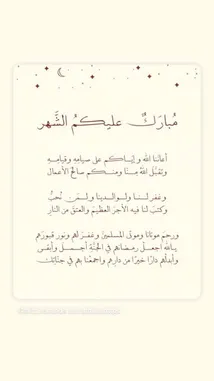 مُبارَكٌ عليكمُ الشَّهر
أعاننا الله وإياكم على صيامِهِ وقيامِهِ
وتقبَّلَ اللهُ مِنّا ومنكم صالحَ الأعمال
وغفر لنا ولوالدينا ولمن نُحبُّ
وكتبَ لنا فيه الأجرَ العظيمَ والعتقَ من النار
ورحمَ موتانا وموتى المسلمين وغفر لهم ونور قبورَهم
يالله اجعل رمضانهم في الجنّةِ أجمل وأبقى
وأبدلهم دارًا خيرًا من دارِهم واجمعنا بهم في جناتِك